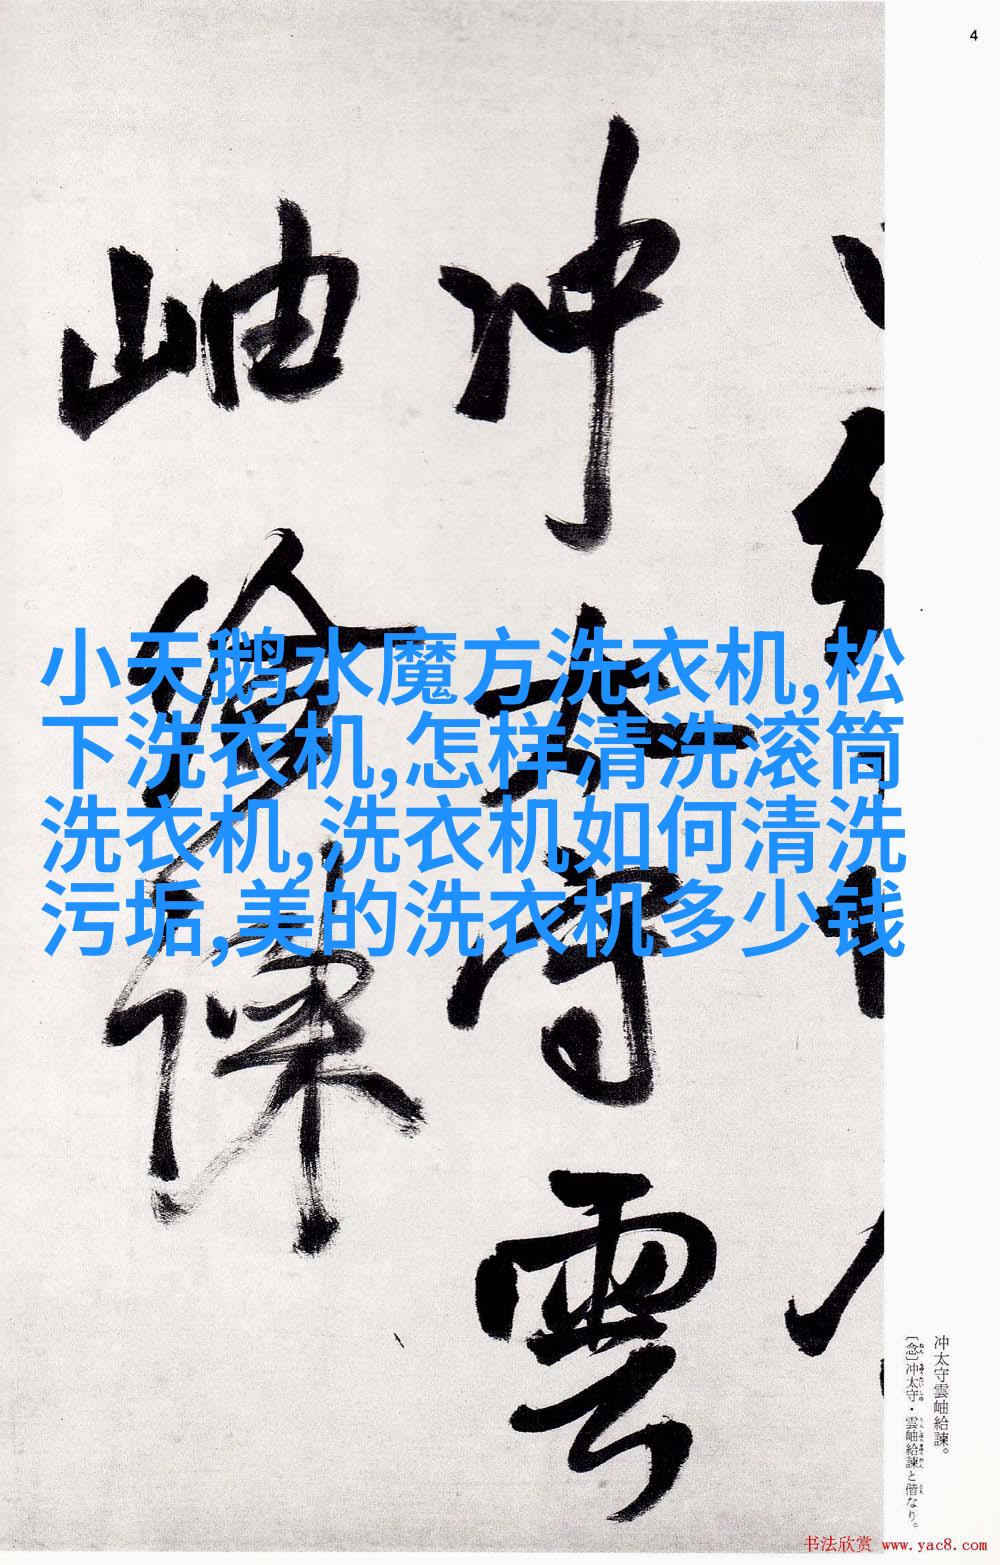 4
冲太守雲
岫給諫
小天鹅水魔方洗衣机,松
下洗衣机,怎样清洗滚筒
洗衣机,洗衣机如何清洗
污垢,美的洗衣机多少钱
冲太守雲岫給諫。
〔念〕冲太守・雲岫給諫と偕なり。
书法欣赏 www.yac8.com